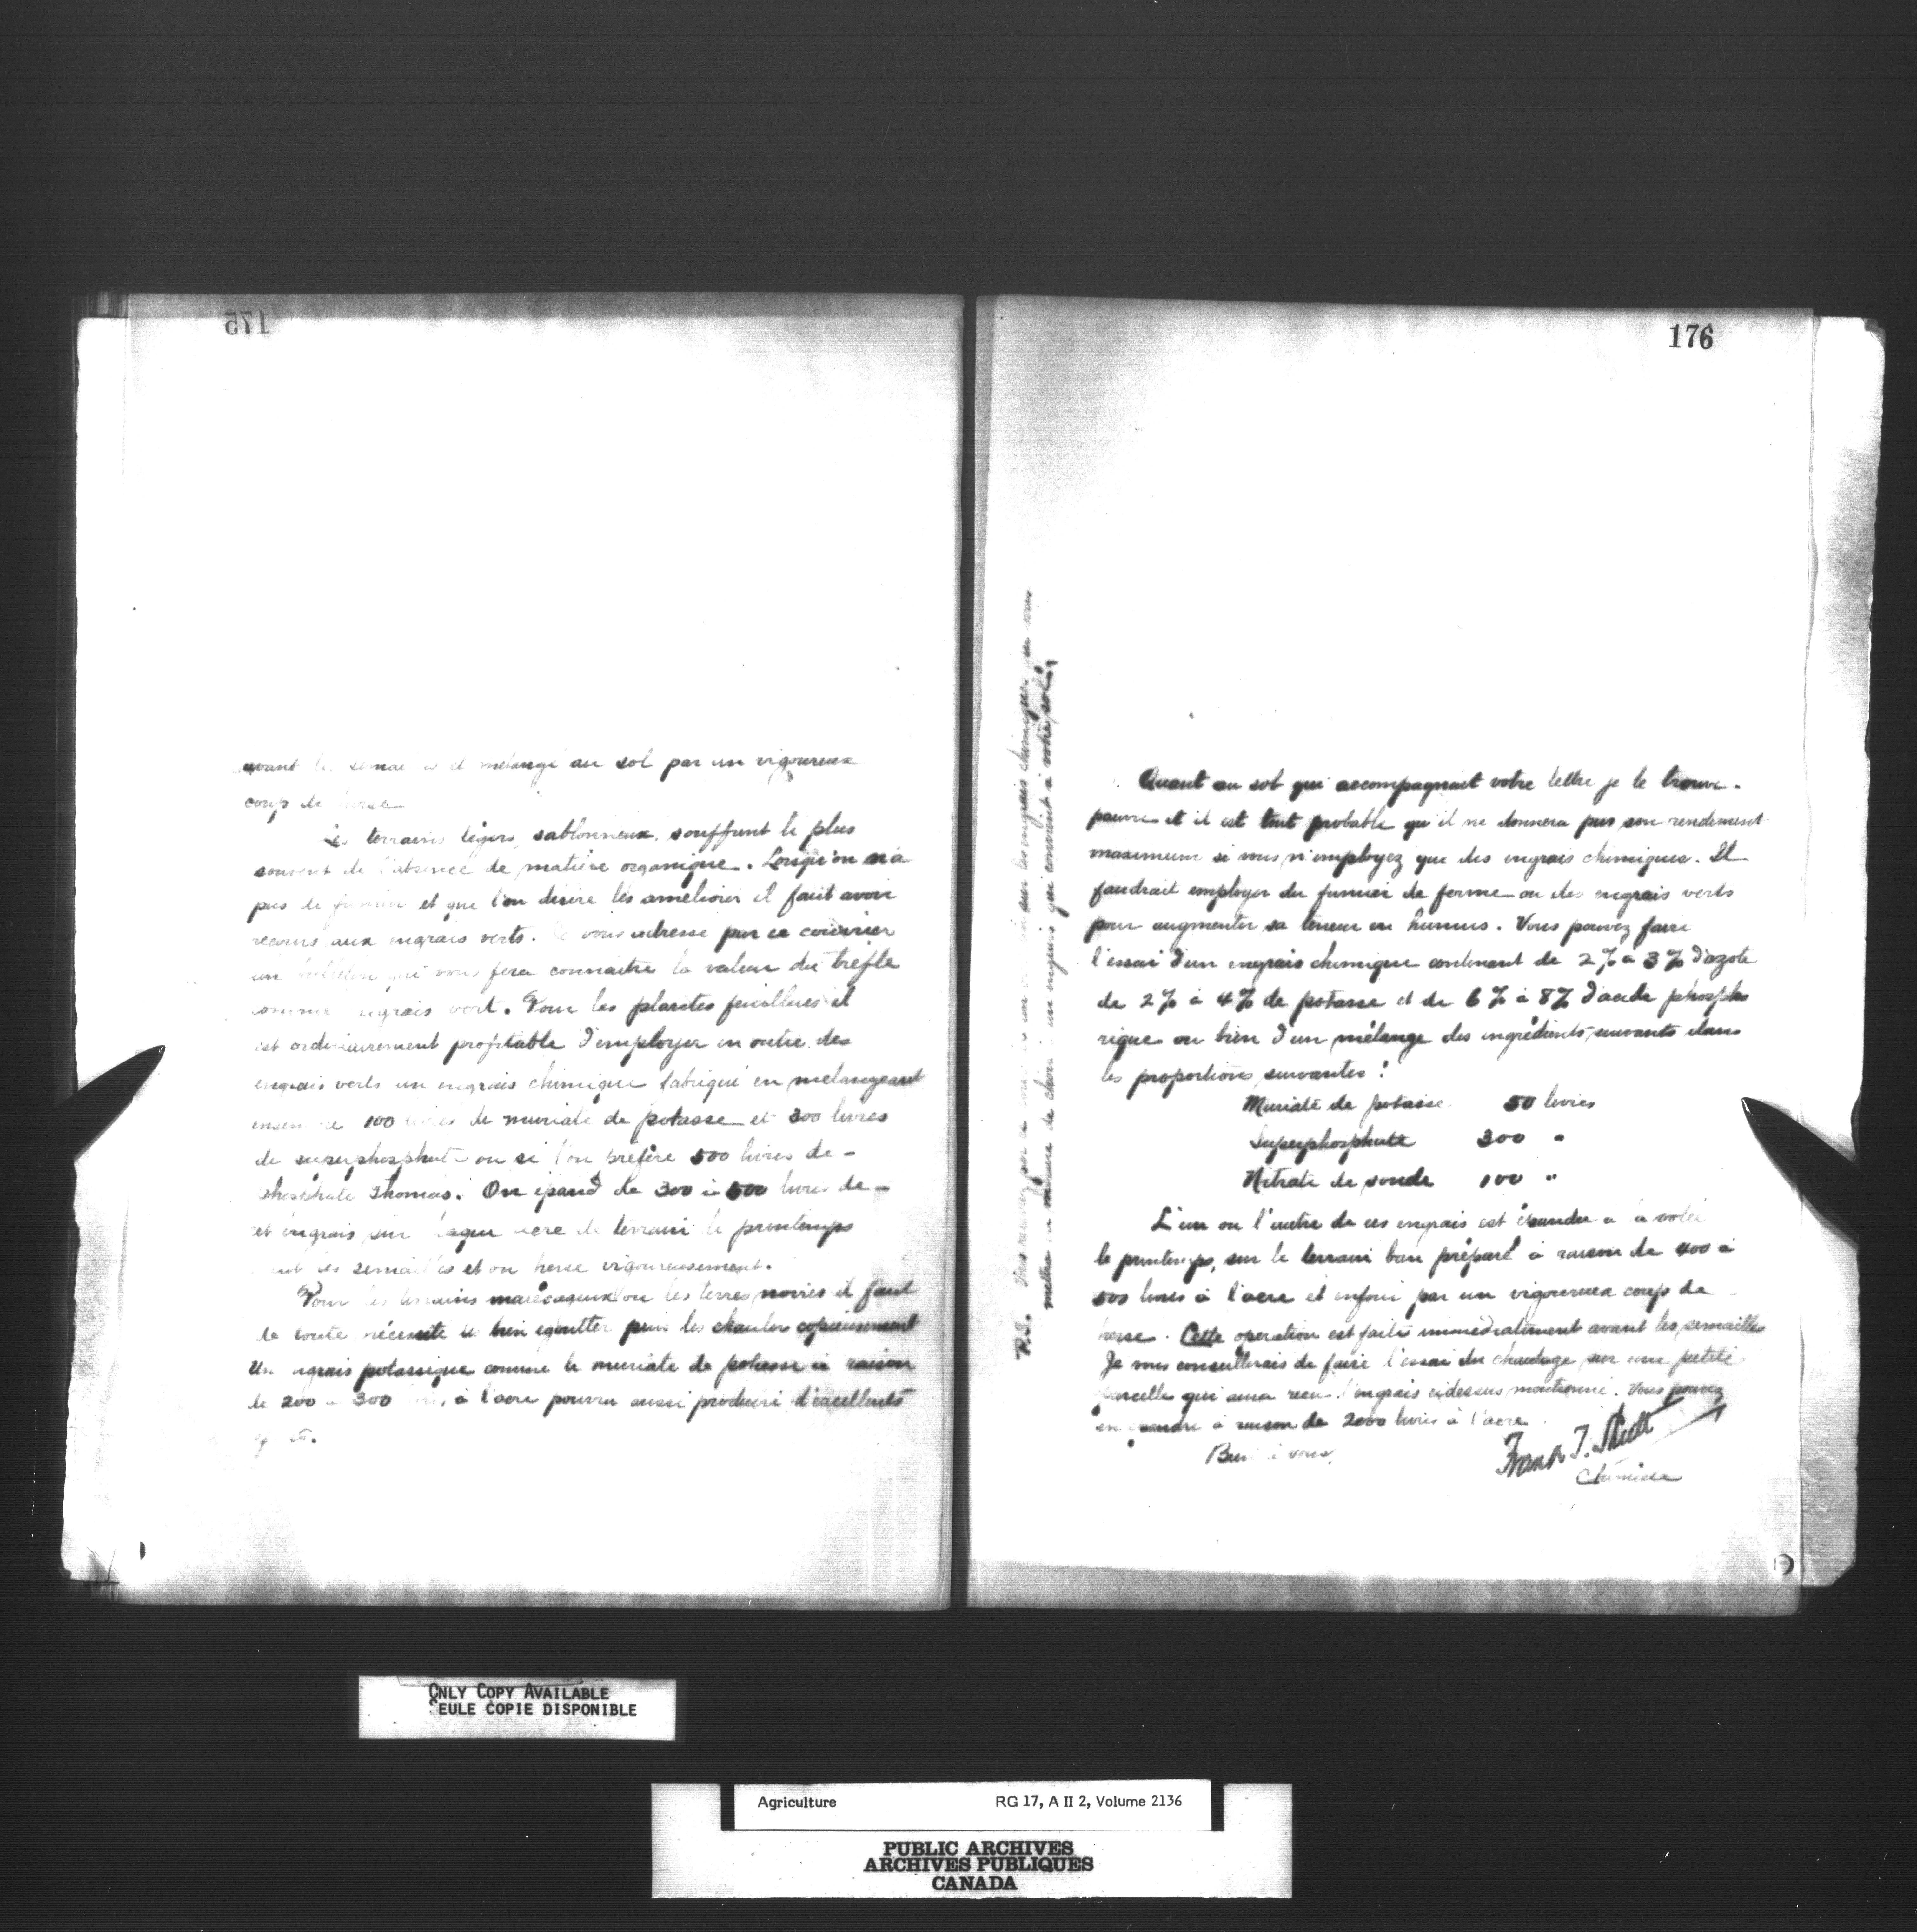 175
avant les semailles et mélangé au sol par un vigoureux
coup de herse
Les terrains légers, sablonneux, souffrent le plus
souvent de l'absence de matière organique. Lorsqu'on n'a
pas de fumier et que l'on désire les améliorer il faut avoir
recours aux engrais verts. Je vous adresse par ce courrier
un bulletin qui vous fera connaitre la valeur du trèfle
comme engrais vert. Pour les plantes feuillues il
est ordinairement profitable d'employer en outre des
engrais verts un engrais chimique fabriqué en mélangeant
ensemble 100 livres de muriate de potasse et 300 livres
de superphosphate ou si l'on préfère 500 livres de
phosphate Thomas. On épand de 300 à 500 livres de
cet engrais sur chaque acre de terrain le printemps
avant les semailles et on herse vigoureusement.
Pour les terrains marécageux ou les terres noires il faut
de toute nécessité les bien égoutter puis les chauler copieusement
Un engrais potassique comme le muriate de potasse à raison
de 200 à 300 à l'acre pourra aussi produire d'excellents
176
Quant au sol qui accompagnait votre lettre je le trouve
pauvre et il est tout probable qu'il ne donnera pas son rendement
maximum si vous n'employez que des engrais chimiques. Il
faudrait employer du fumier de ferme ou des engrais verts
pour augmenter sa teneur en humus. Vous pouvez faire
l'essai d'un engrais chimique contenant de 2% à 3% d'azote
de 2% à 4% de potasse et de 6% à 8% d'acide phospho
rique ou bien d'un mélange des ingrédients suivants dans
les proportions suivantes :
Muriate de potasse 50 livres
Superphosphate 300 "
Nitrate de soude 100 "
L'un ou l'autre de ces engrais est épandu à la volée
le printemps, sur le terrain bien préparé à raison de 400 à
500 livres à l'acre et enfoui par un vigoureux coup de
herse. Cette opération est faite immédiatement avant les semailles
Je vous conseillerais de faire l'essai du chaulage sur une petite
parcelle qui aura reçu l'engrais cidessus mentionné. Vous pouvez
en épandre à raison de 2000 livres à l'acre
Bien à vous,
Frank T. Shutt
Chimiste
P.S. Vous recevrez par ce courrier un bulletin sur les engrais chimiques qui vous
mettra à même de choisir un engrais qui convient à votre sol.
ONLY COPY AVAILABLE
SEULE COPIE DISPONIBLE
Agriculture RG 17, A II 2, Volume 2136
PUBLIC ARCHIVES
ARCHIVES PUBLIQUES
CANADA